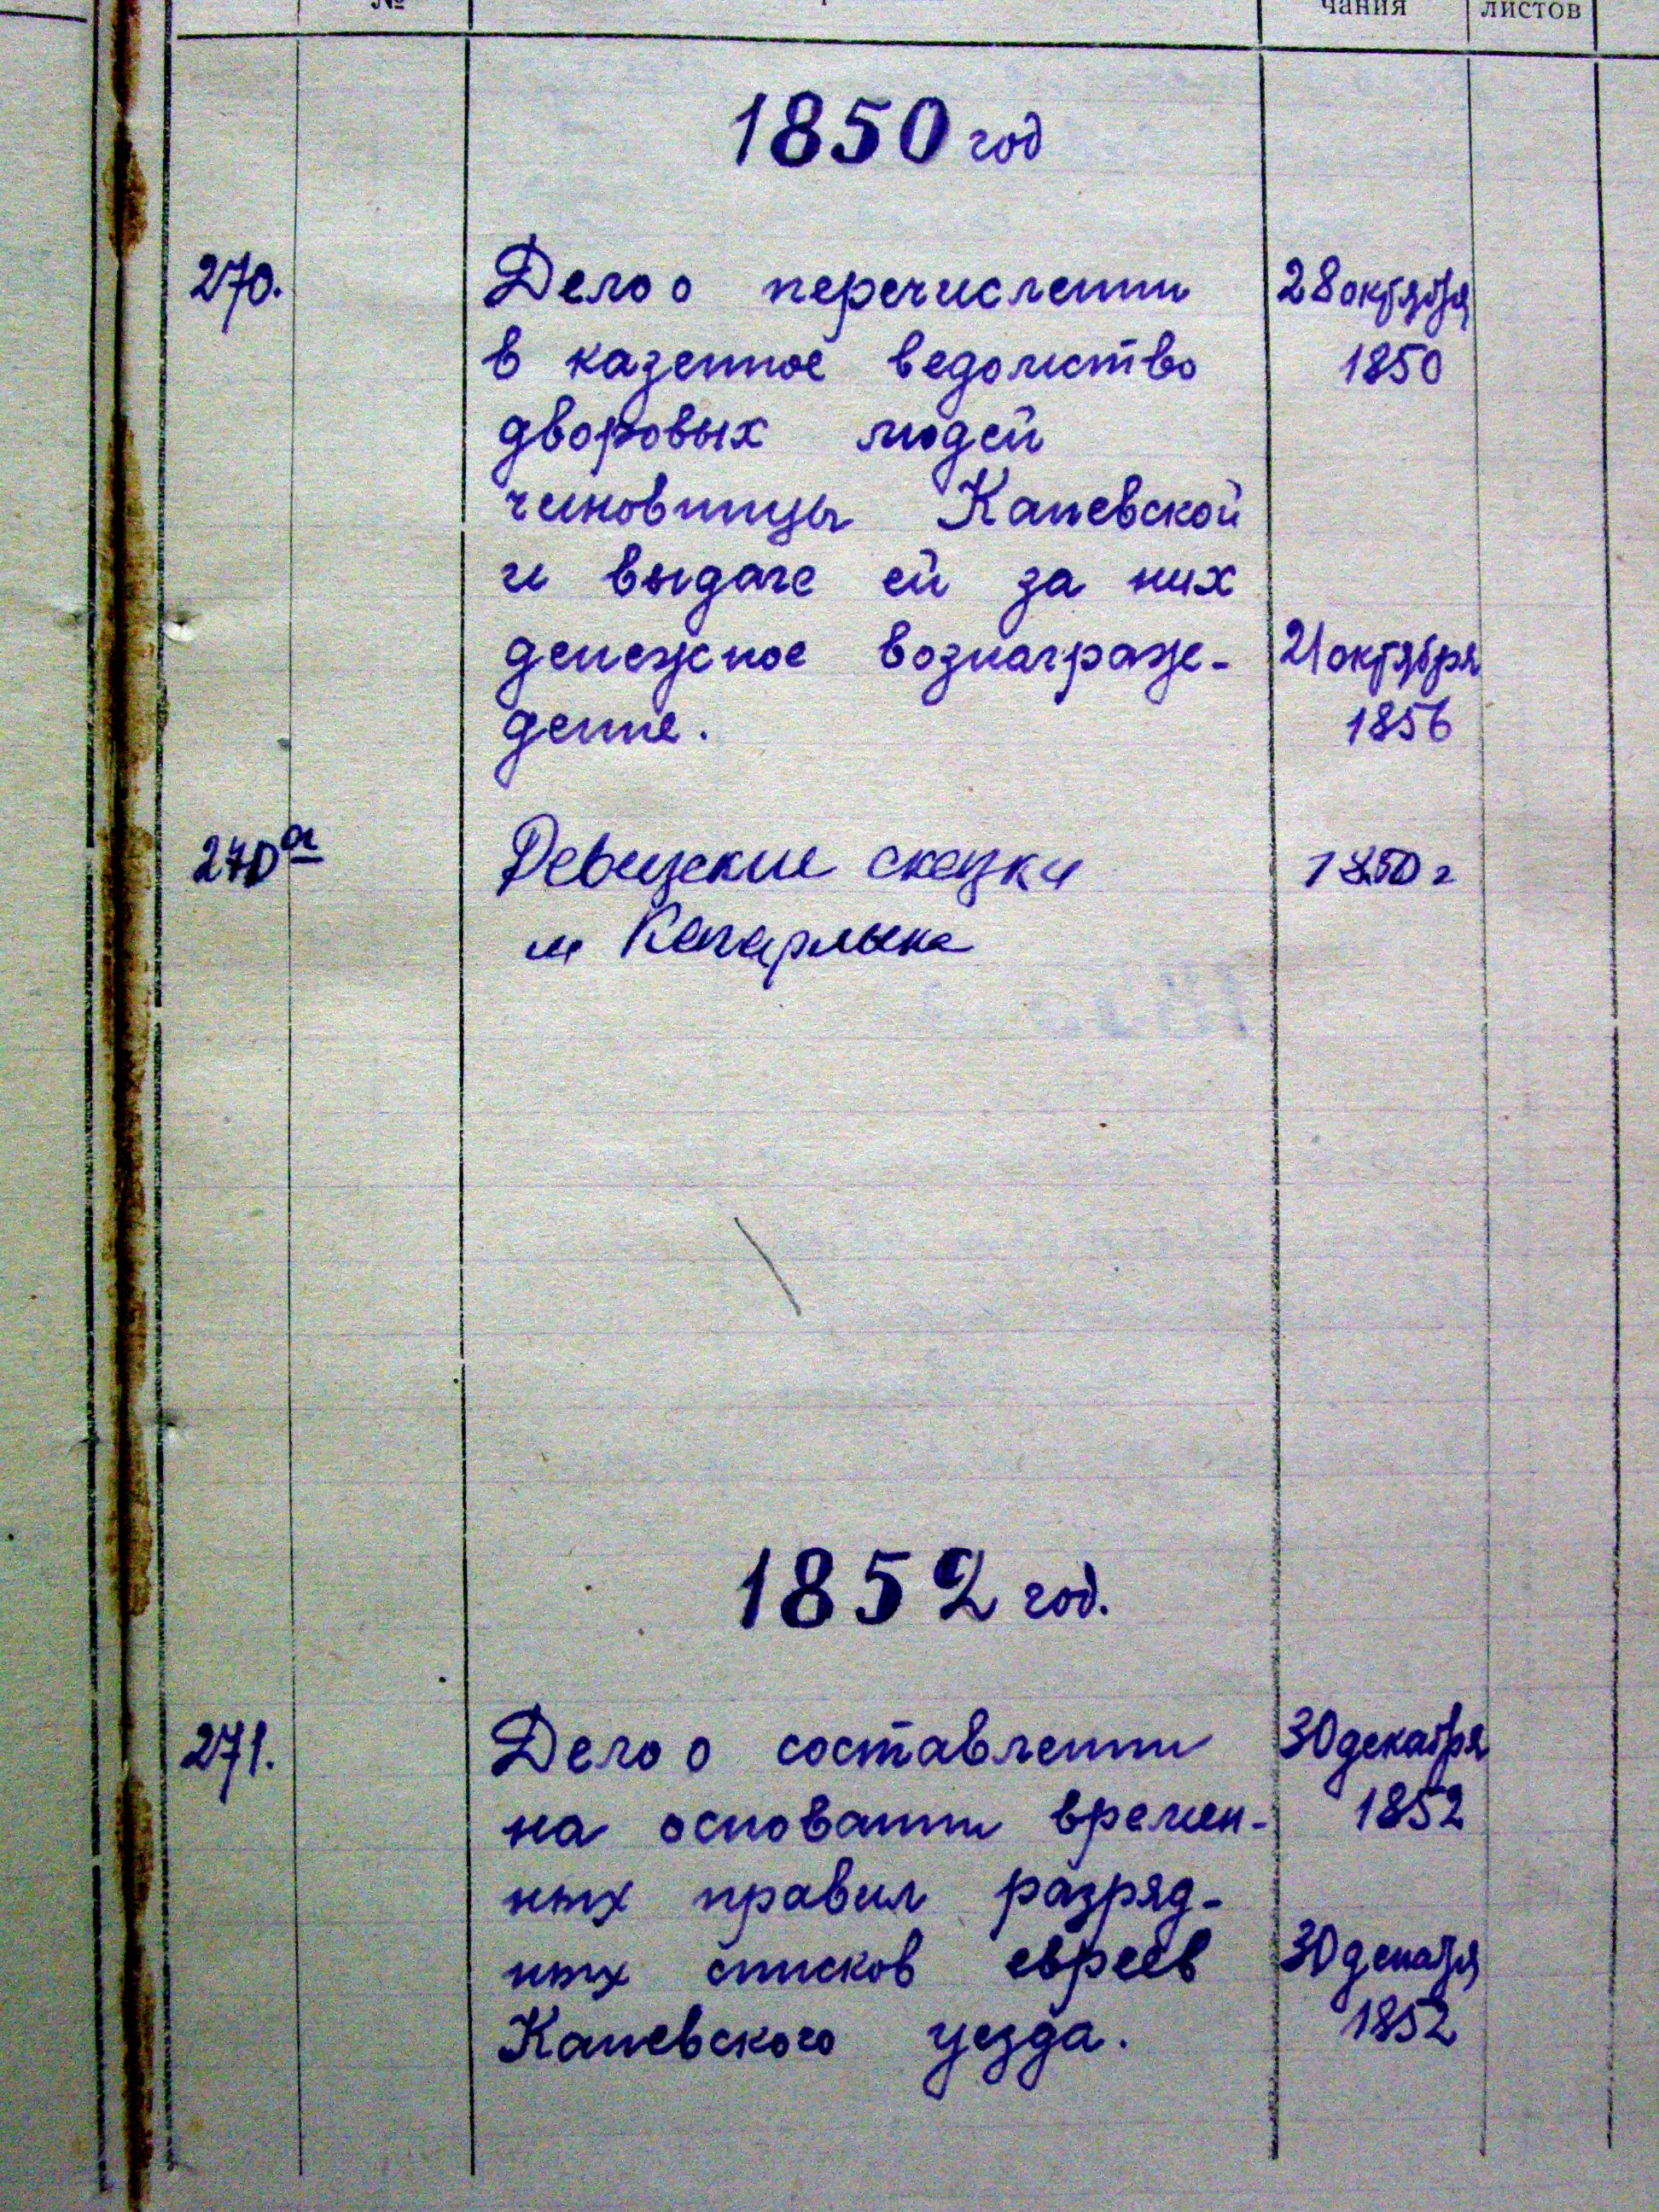 № чания листов
1850 год
270. Дело о перечислении 28 октября
в казенное ведомство 1850
дворовых людей
чиновницы Каневской
и выдаче ей за них
денежное вознаграж- 21 октября
дение. 1856
270а Ревизские сказки 1850 г
м Кагарлыка
1852 год.
271. Дело о составлении 30 декабря
на основании времен- 1852
ных правил разряд-
ных списков евреев 30 декабря
Каневского уезда. 1852